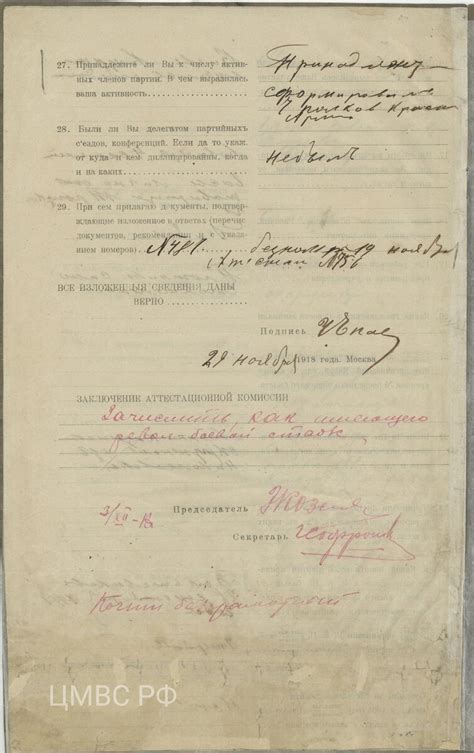 27. Принадлежите ли Вы к числу актив-
ных членов партии. В чем выразилась
ваша активность
Принадлежу
сформировалъ
полков Красн
Армии
28. Были ли Вы делегатом партийныхъ
с'ездов, конференций. Если да то укаж.
от куда и кем делигированны, когда
и на каких
небылъ
29. При сем прилагаю документы, подтверж-
дающие изложенное в ответах (перечис
документов, рекомендации и с указа-
нием номеров)
№481 19 ноября
ВСЕ ИЗЛОЖЕННЫЯ СВЕДЕНИЯ ДАНЫ
ВЕРНО
Подпись
29 ноября 1918 года. Москва
ЗАКЛЮЧЕНИЕ АТТЕСТАЦИОННОЙ КОМИССИИ
Зачислить, как имеющего
револ-боевой стаж.
3/XII-18
Председатель
Секретарь
Почти безграмотный
ЦМВС РФ